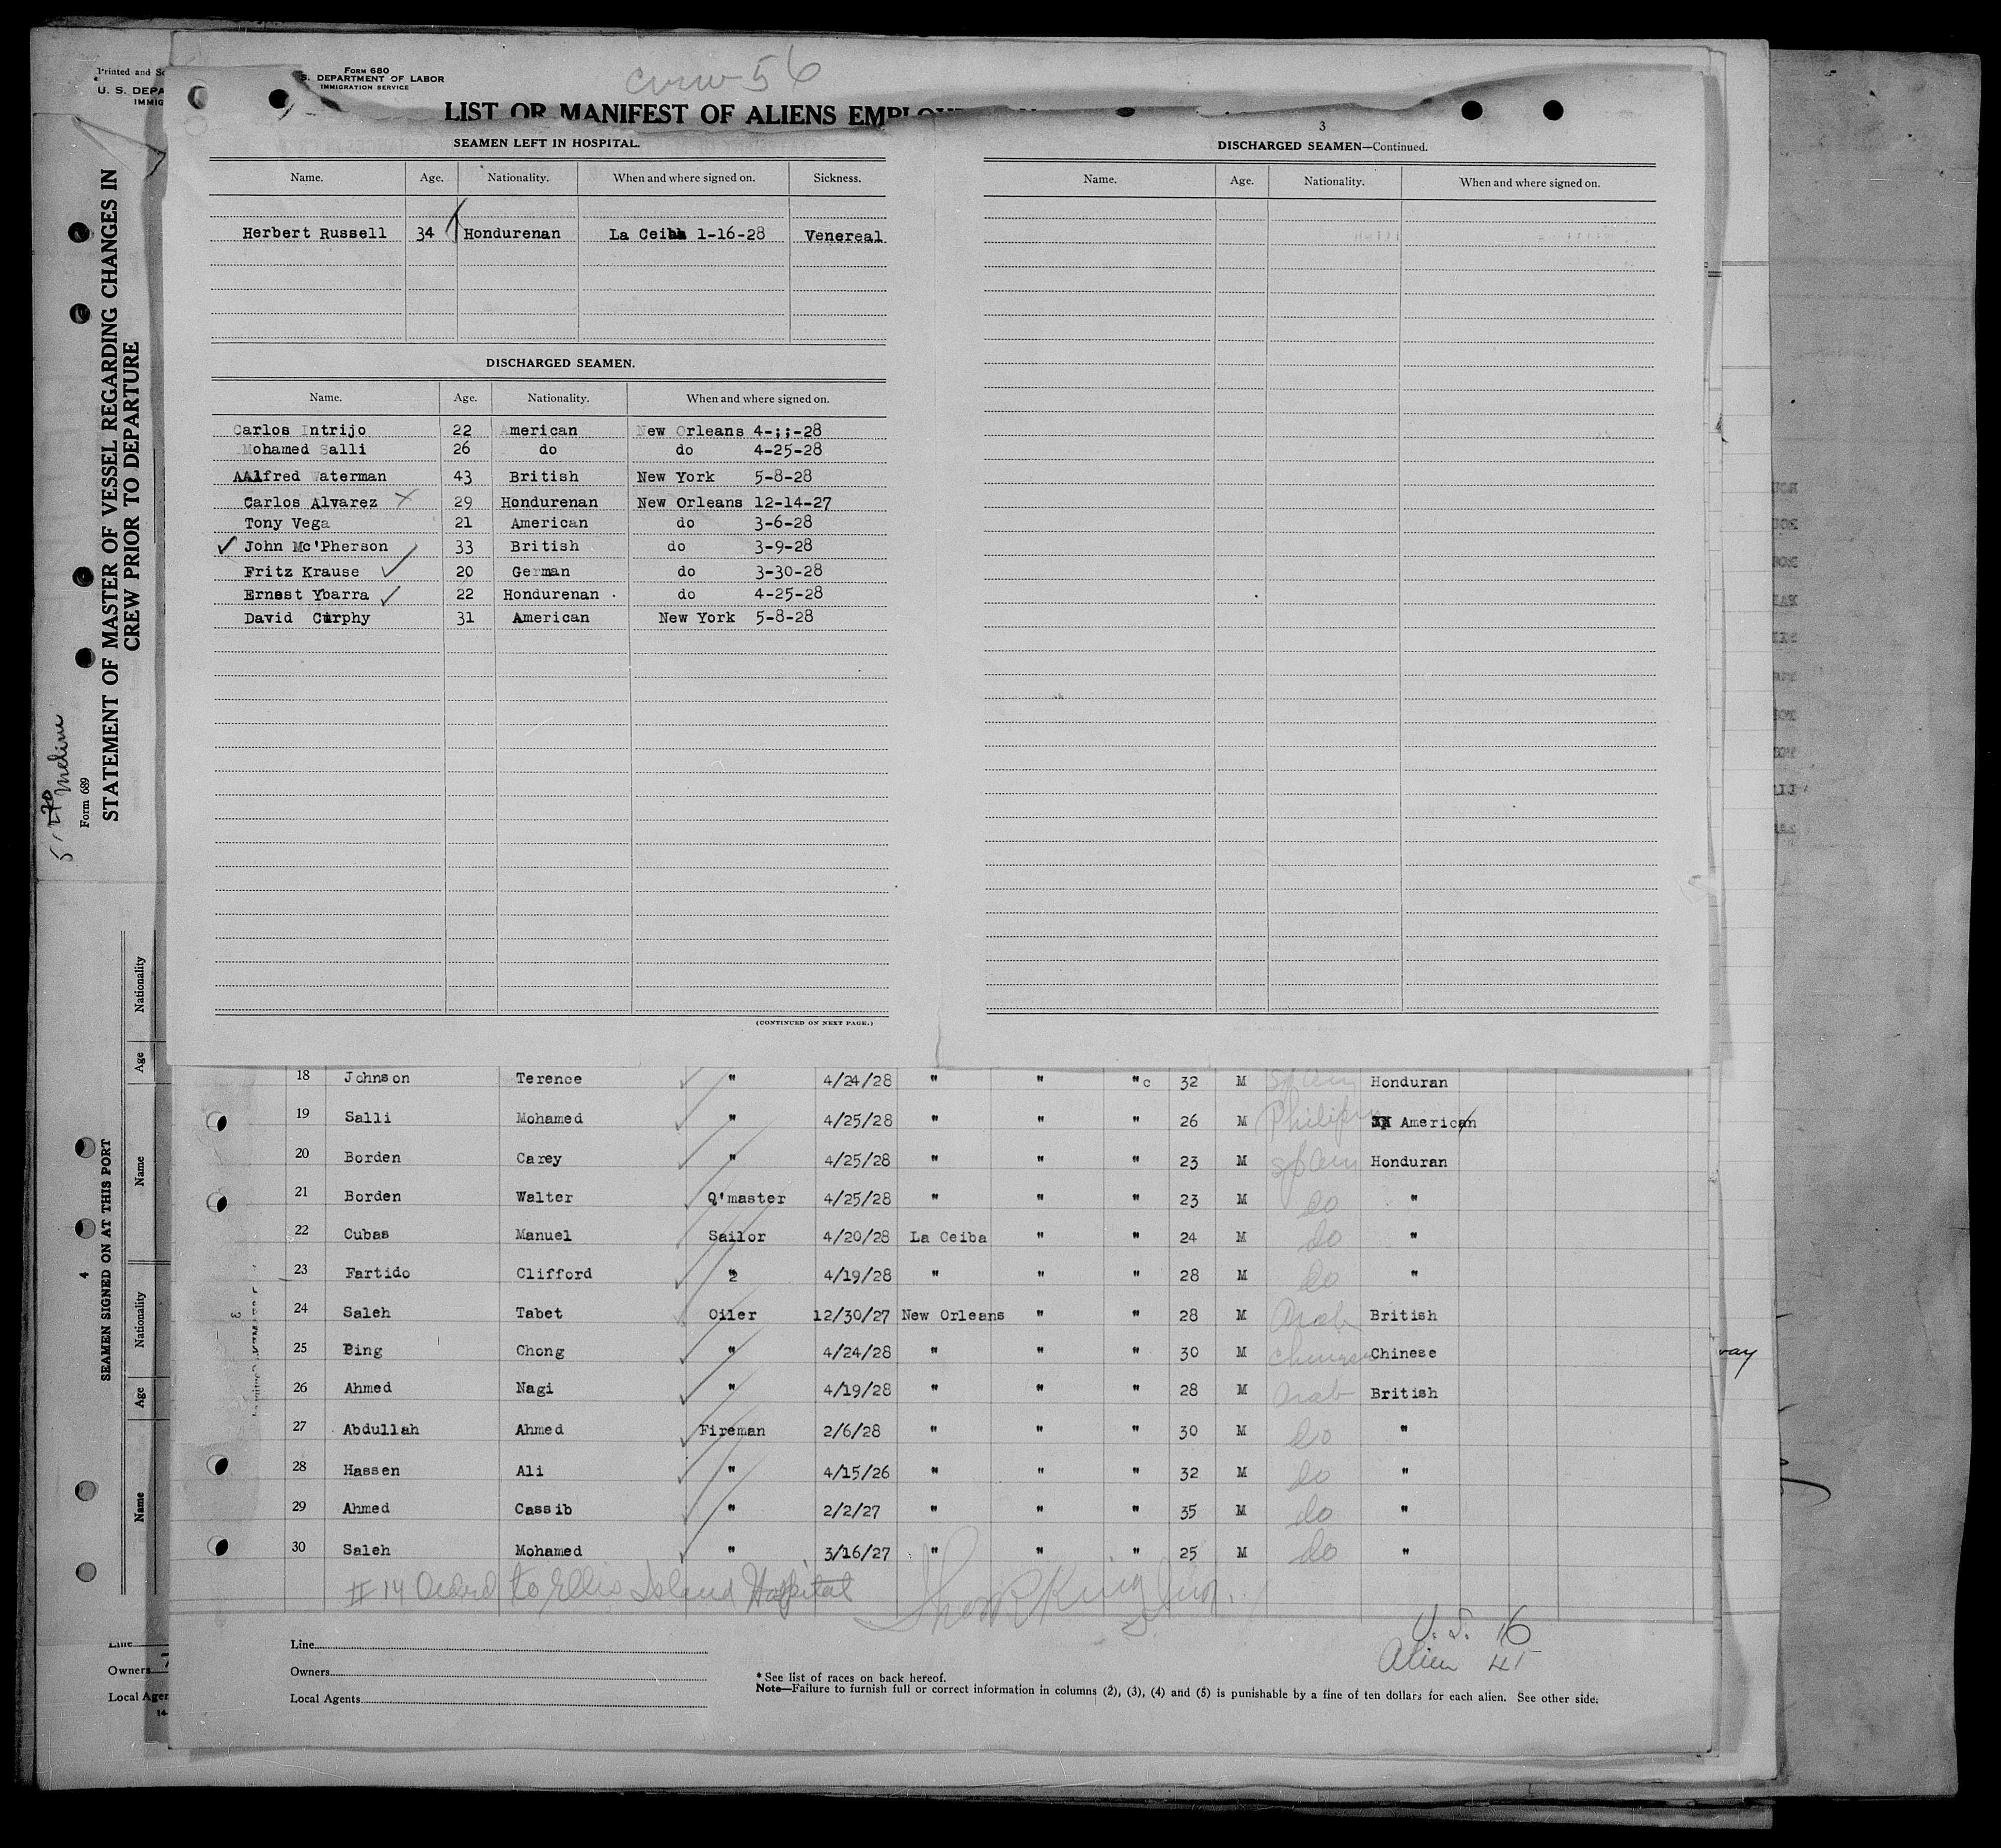 Form 680
S. DEPARTMENT OF LABOR
IMMIGRATION SERVICE
56
LIST OR MANIFEST OF ALIENS
SEAMEN LEFT IN HOSPITAL.
Name. Age. Nationality. When and where signed on. Sickness.
Herbert Russell 34 Hondurenan La Ceiba 1-16-28 Venereal
DISCHARGED SEAMEN.
Name. Age. Nationality. When and where signed on.
Carlos Intrijo 22 American New Orleans 4-;;-28
Mohamed Salli 26 do do 4-25-28
AAlfred Waterman 43 British New York 5-8-28
Carlos Alvarez 29 Hondurenan New Orleans 12-14-27
Tony Vega 21 American do 3-6-28
John Mc'Pherson 33 British do 3-9-28
Fritz Krause 20 German do 3-30-28
Ernest Ybarra 22 Hondurenan do 4-25-28
David Curphy 31 American New York 5-8-28
(CONTINUED ON NEXT PAGE.)
3
DISCHARGED SEAMEN—Continued.
Name. Age. Nationality. When and where signed on.
18 Johnson Terence " 4/24/28 " " "c 32 M Span Honduran
19 Salli Mohamed " 4/25/28 " " " 26 M American
20 Borden Carey " 4/25/28 " " " 23 M Span Honduran
21 Borden Walter Q'master 4/25/28 " " " 23 M do "
22 Cubas Manuel Sailor 4/20/28 La Ceiba " " 24 M do "
23 Fartido Clifford " 4/19/28 " " " 28 M do "
24 Saleh Tabet Oiler 12/30/27 New Orleans " " 28 M Arab British
25 Bing Chong " 4/24/28 " " " 30 M Chinese Chinese
26 Ahmed Nagi " 4/19/28 " " " 28 M Arab British
27 Abdullah Ahmed Fireman 2/6/28 " " " 30 M do "
28 Hassen Ali " 4/15/26 " " " 32 M do "
29 Ahmed Cassib " 2/2/27 " " " 35 M do "
30 Saleh Mohamed " 3/16/27 " " " 25 M do "
#14 to Ellis Island Hospital
U. S. 16
Alien 45
Line
Owners
Local Agents
* See list of races on back hereof.
Note—Failure to furnish full or correct information in columns (2), (3), (4) and (5) is punishable by a fine of ten dollars for each alien. See other side.
Printed and
U. S.
Form 689
STATEMENT OF MASTER OF VESSEL REGARDING CHANGES IN
CREW PRIOR TO DEPARTURE
4
SEAMEN SIGNED ON AT THIS PORT
Name Age Nationality Name Age Nationality
Line
Owners
Local